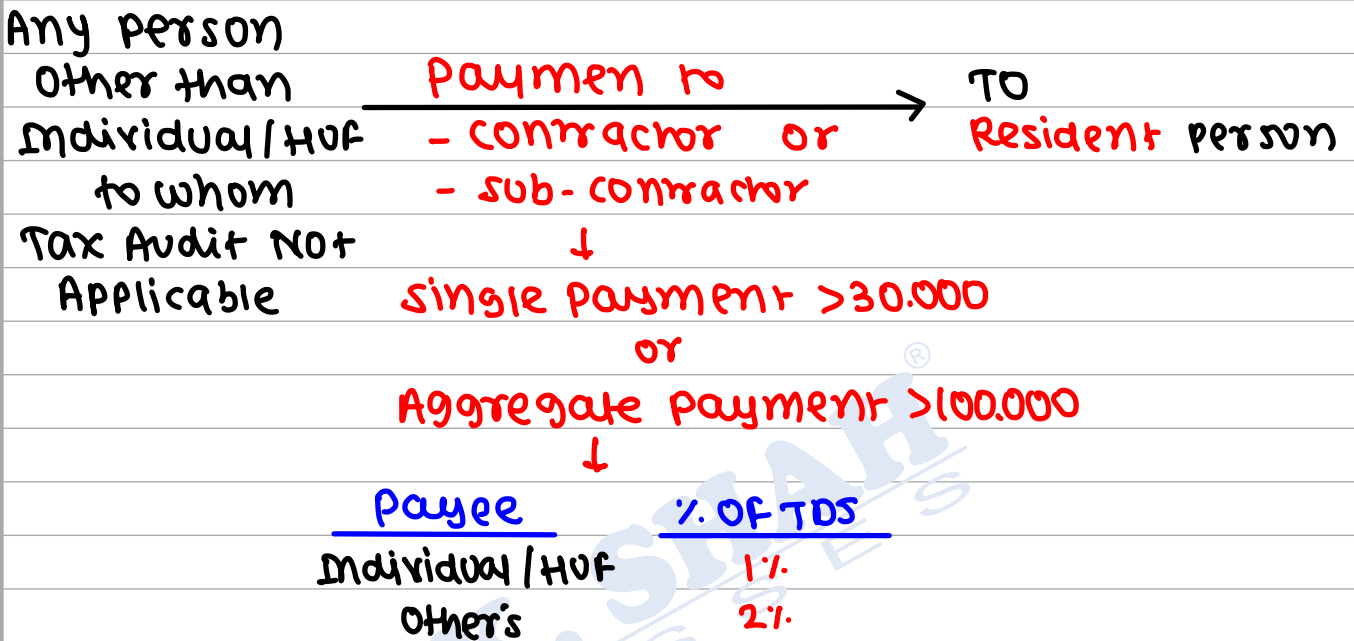 Any person
Other than
Individual/HUF
to whom
Tax Audit Not
Applicable
Paymen to
- contractor or
- sub-contractor
↓
single payment >30.000
or
Aggregate payment >100.000
↓
TO
Resident person
Payee % OF TDS
Individual/HUF 1%
Other's 2%
SHAH®
S E S